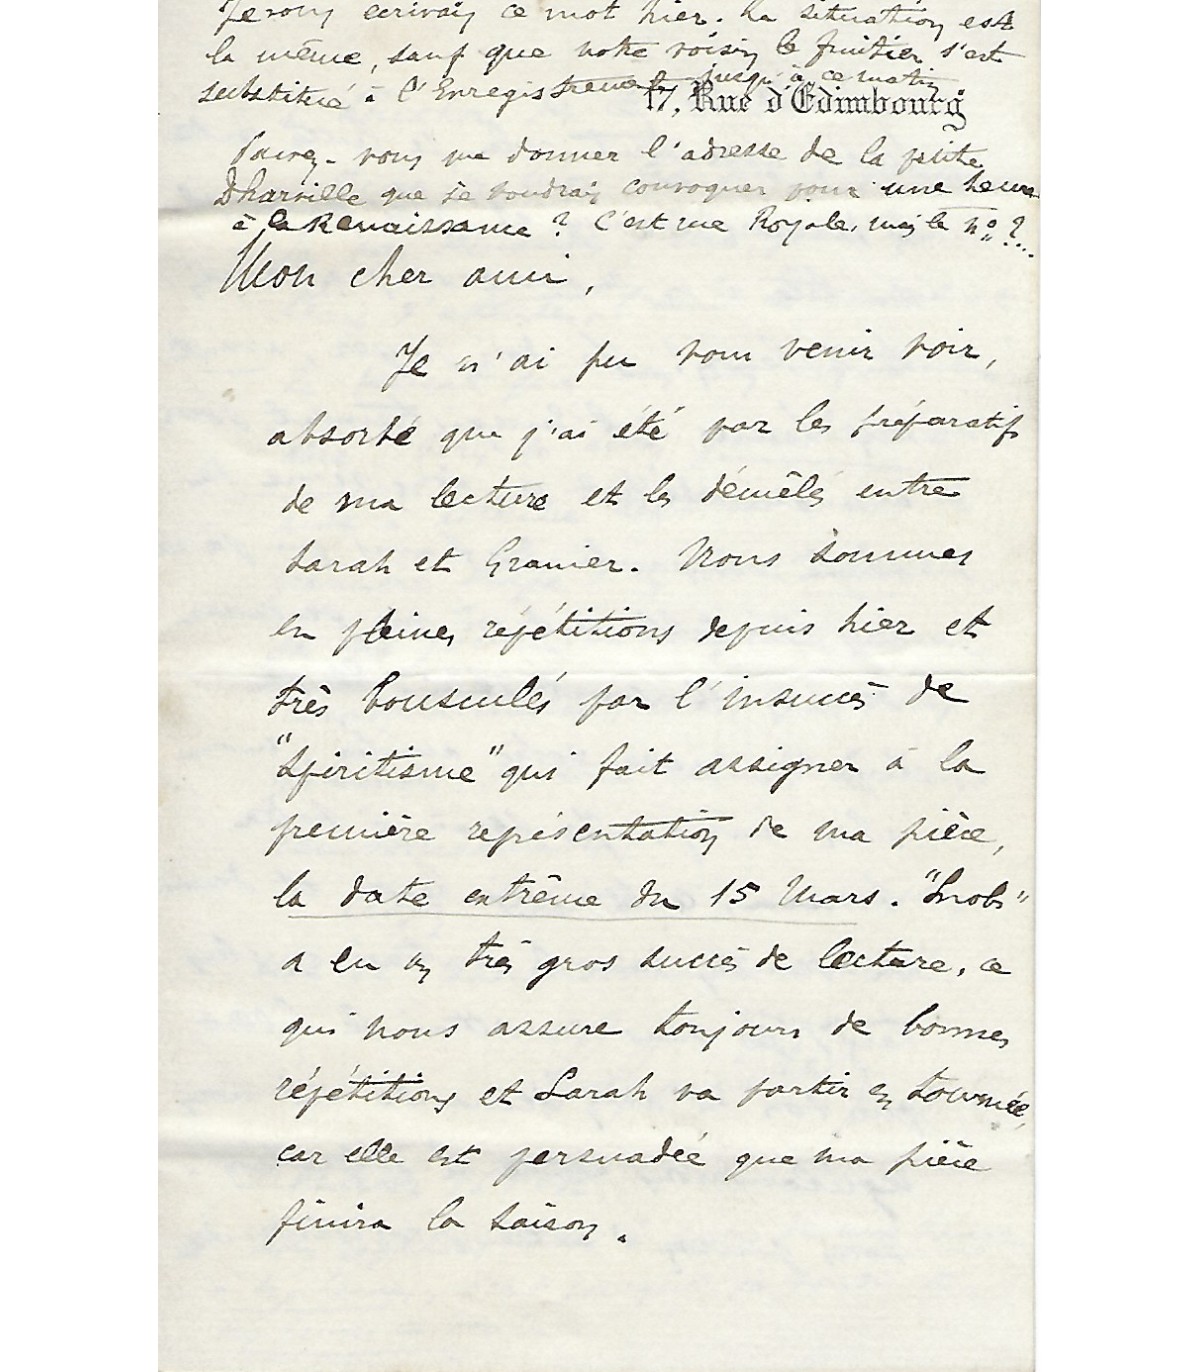 Je vous écrivais ce mot hier. La situation est
la même, sauf que notre voisin le fruitier s'est
substitué à l'Enregistrement jusqu'à ce matin
17, Rue d'Edimbourg
Pouvez-vous me donner l'adresse de la petite
Dharville que je voudrais convoquer pour une heure
à la Renaissance ? C'est rue Royale, mais le no ?...
Mon cher ami,
Je n'ai pu vous venir voir,
absorbé que j'ai été par les préparatifs
de ma lecture et les démêlés entre
Sarah et Granier. Nous sommes
en pleines répétitions depuis hier et
très bousculés par l'insuccès de
"Spiritisme" qui fait assigner à la
première représentation de ma pièce,
la date extrême du 15 Mars. "Snob"
a eu un très gros succès de lecture, ce
qui nous assure toujours de bonnes
répétitions et Sarah va partir en tournée,
car elle est persuadée que ma pièce
finira la saison.